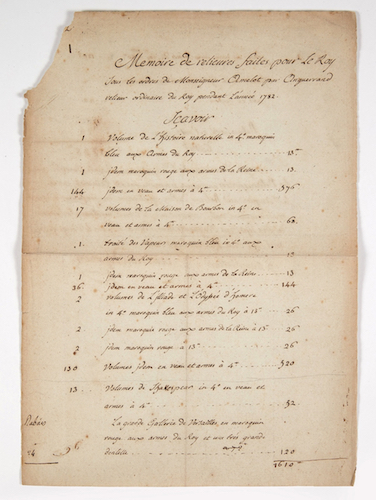 1
Memoire de relieures faites pour Le Roy
Sous les ordres de Monseigneur Amelot par Anguerrand
relieur ordinaire du Roy pendant l'année 1782.
Sçavoir
1 Volume de L'histoire naturelle in 4° maroquin
bleu aux Armes du Roy 13
1 Idem maroquin rouge aux armes de la Reine 13.
144 Idem en veau et armes à 4 576
17 Volumes de la Maison de Bourbon in 4° en
veau et armes à 4 68.
1 traité des Vapeurs maroquin bleu in 4° aux
armes du Roy 13
1 Idem maroquin rouge aux armes de la Reine 13
36 Idem en veau et armes à 4 144
2 Volumes de L'Iliade et L'Odyssée d'Homere
in 4° maroquin bleu aux armes du Roy à 13 26
2 Idem maroquin rouge aux armes de la Reine à 13 26
2 Idem maroquin rouge à 13 26
130 Volumes Idem en veau et armes à 4 520
13 Volumes de Shakespear in 4° en veau et
armes à 4 52
La grande Gallerie de Versailles, en maroquin
rouge aux armes du Roy et une très grande
dentelle 120
24
1610